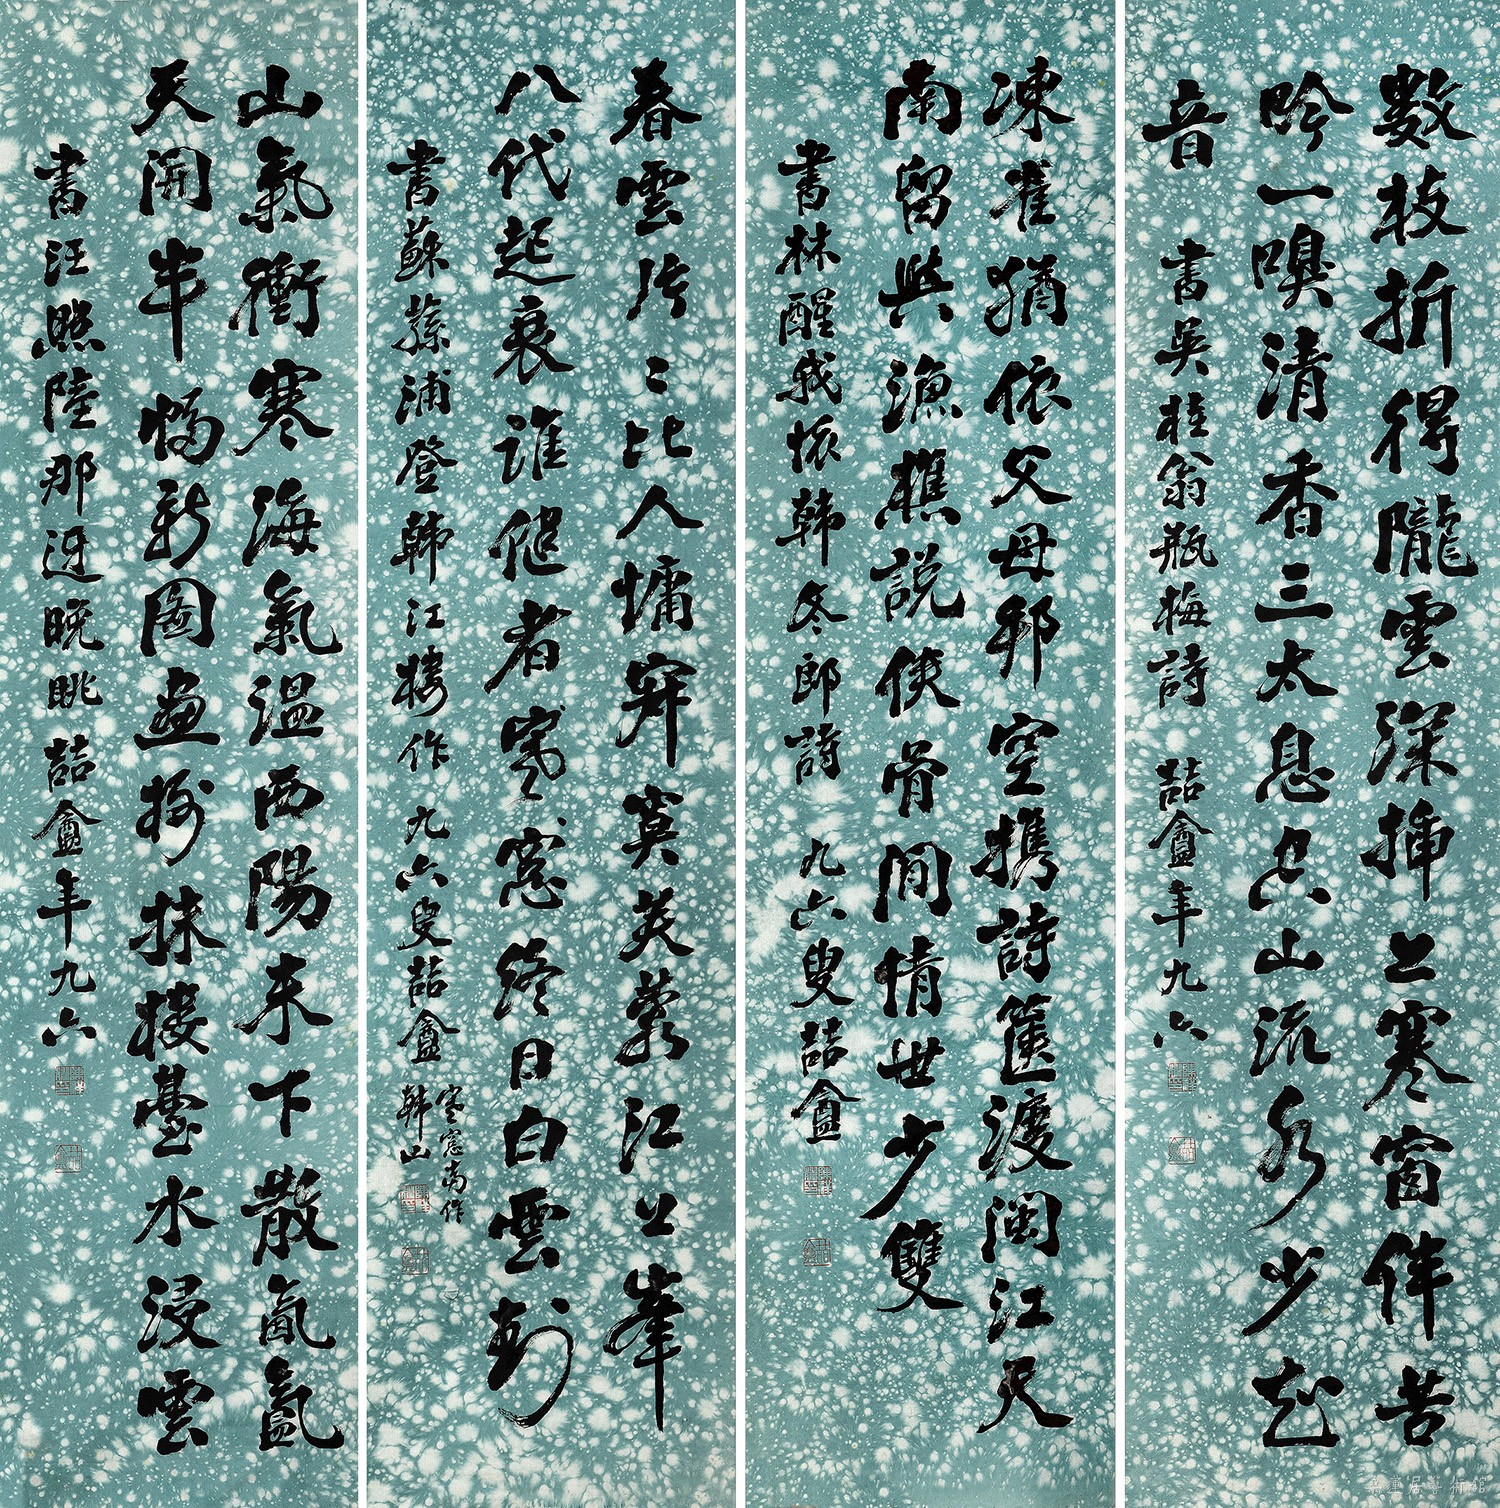 數枝折得隴雲深插上寒窗伴苦
吟一嗅清香三太息空山流水少知
音
書吳桂翁瓶梅詩 喆盦年九六
凍雀猶依父母邦空携詩篋渡閩江天
南留與漁樵說俠骨閒情世少雙
書林醒我懷韓冬郎詩 九六叟喆盦
春雲片〻比人慵窣窣芙蓉江上峯
八代起衰誰健者寒窓終日白雲封
書蘇蓀浦登韓江樓作 九六叟喆盦
寒窓為作
韓山
山氣衝寒海氣溫西陽未下散氤氳
天開半幅新圖畫掃抹樓臺水浸雲
書汪照陸那迓晚眺 喆盦年九六